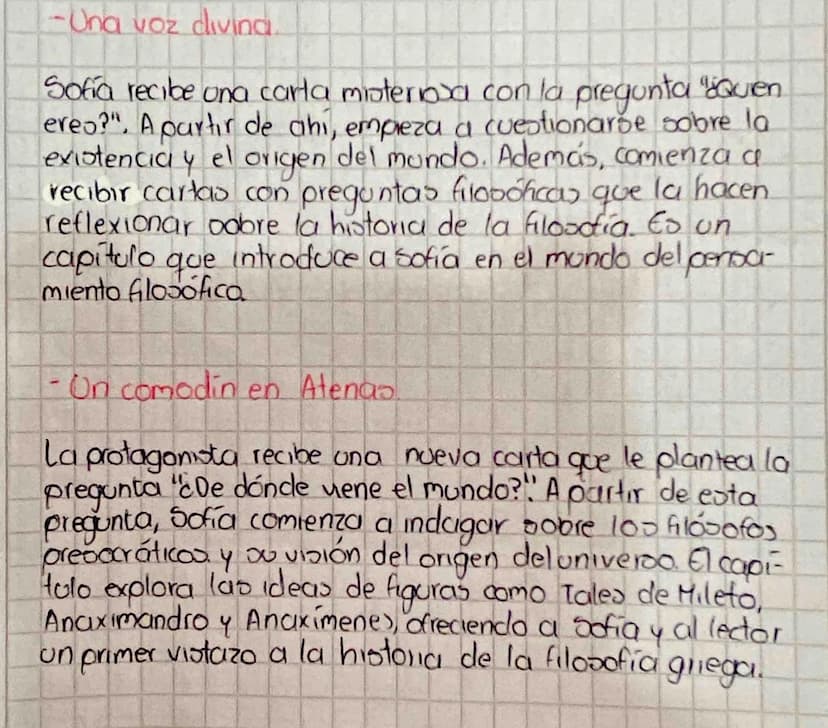 - Una voz divina.
Sofía recibe una carta misteriosa con la pregunta "¿Quien
eres?". A partir de ahí, empieza a cuestionarse sobre la
existencia y el origen del mundo. Además, comienza a
recibir cartas con preguntas filosóficas que la hacen
reflexionar sobre la historia de la filosofía. Es un
capítulo que introduce a Sofía en el mundo del pensa-
miento filosófica
- Un comodín en Atenas.
La protagonista recibe una nueva carta que le plantea la
pregunta "¿De dónde viene el mundo?". A partir de esta
pregunta, Sofía comienza a indagar sobre los filósofos
presocráticos y su visión del origen del universo. El capí-
tulo explora las ideas de figuras como Tales de Mileto,
Anaximandro y Anaxímenes, ofreciendo a Sofía y al lector
un primer vistazo a la historia de la filosofía griega.